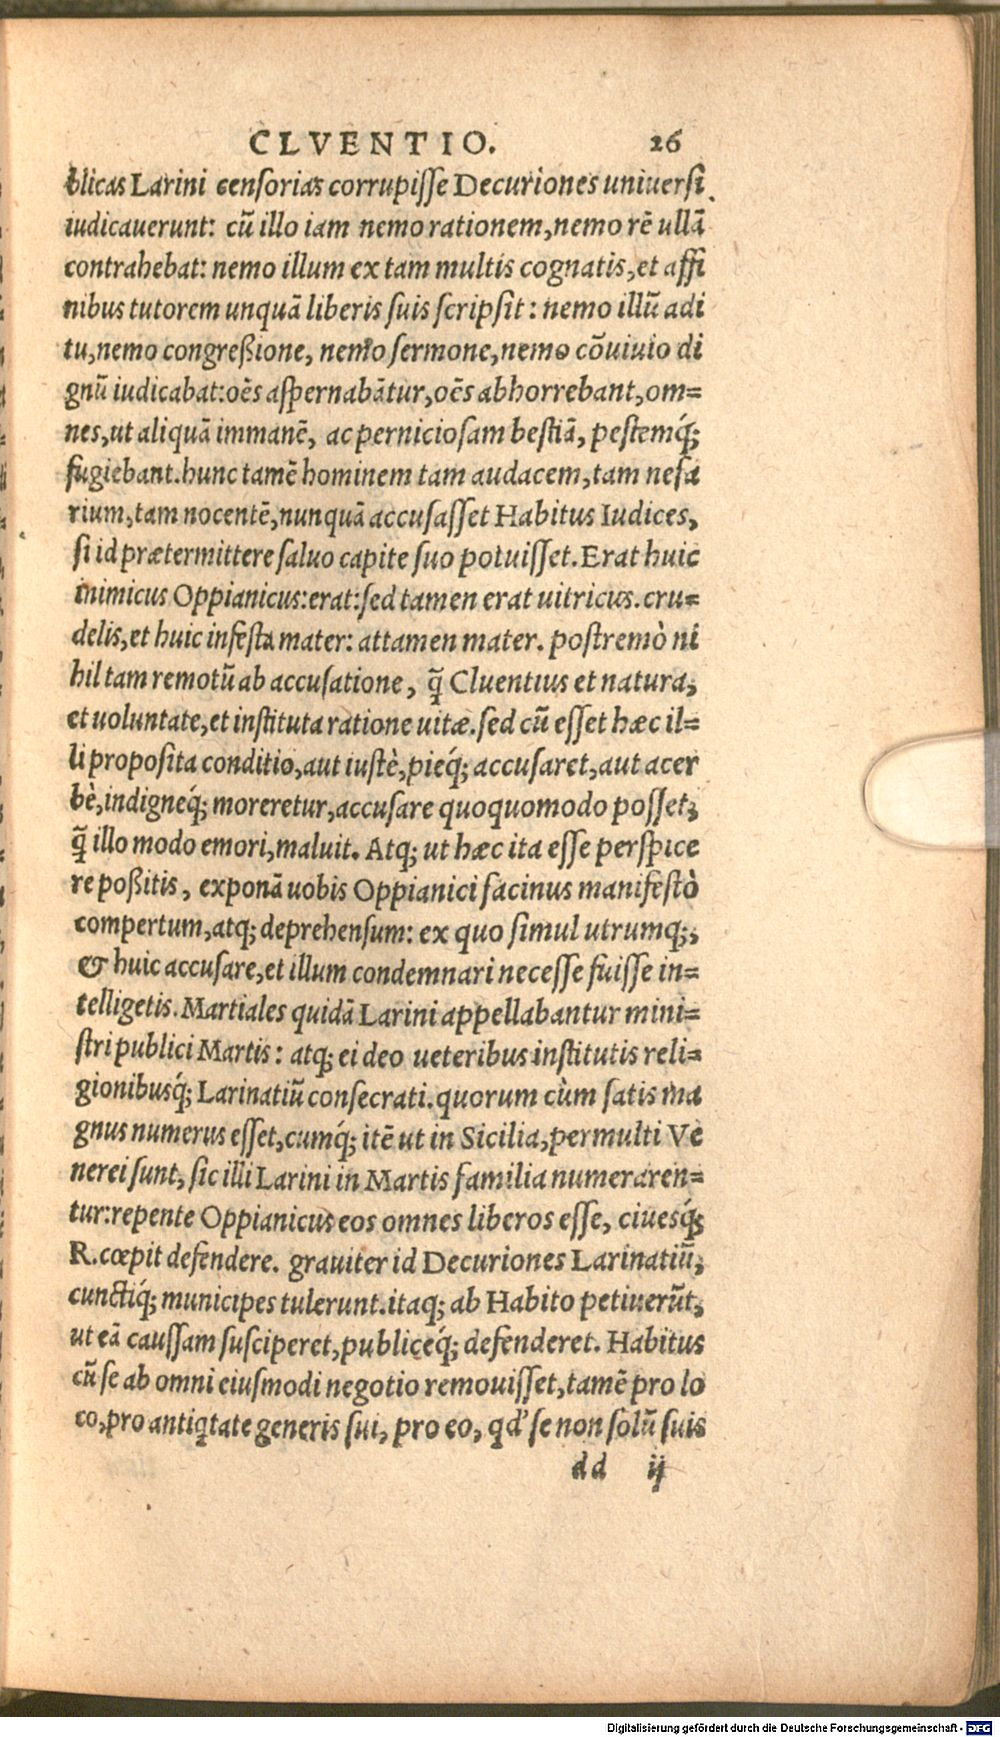 CLVENTIO. 26
blicas Larini censorias corrupisse Decuriones uniuersi
iudicauerunt: cũ illo iam nemo rationem, nemo rẽ ullã
contrahebat: nemo illum ex tam multis cognatis, et affi
nibus tutorem unquã liberis suis scripsit: nemo illũ adi
tu, nemo congreßione, nemo sermone, nemo cõuiuio di
gnũ iudicabat: oẽs aspernabãtur, oẽs abhorrebant, om=
nes, ut aliquã immanẽ, ac perniciosam bestiã, pestemq́;
fugiebant. hunc tamẽ hominem tam audacem, tam nefa
rium, tam nocentẽ, nunquã accusasset Habitus Iudices,
si id prætermittere saluo capite suo potuisset. Erat huic
inimicus Oppianicus: erat: sed tamen erat uitricus. cru=
delis, et huic infesta mater: attamen mater. postremò ni
hil tam remotũ ab accusatione, q̃ Cluentius et natura,
et uoluntate, et instituta ratione uitæ. sed cũ esset hæc il=
li proposita conditio, aut iustè, pieq́; accusaret, aut acer
bè, indigneq́; moreretur, accusare quoquomodo posset,
q̃ illo modo emori, maluit. Atq; ut hæc ita esse perspice
re poßitis, exponã uobis Oppianici facinus manifestò
compertum, atq; deprehensum: ex quo simul utrumq;,
& huic accusare, et illum condemnari necesse fuisse in=
telligetis. Martiales quidã Larini appellabantur mini=
stri publici Martis: atq; ei deo ueteribus institutis reli=
gionibusq́; Larinatiũ consecrati. quorum cùm satis ma
gnus numerus esset, cumq́; itẽ ut in Sicilia, permulti Ve
nerei sunt, sic illi Larini in Martis familia numeraren=
tur: repente Oppianicus eos omnes liberos esse, ciuesq́;
R. cœpit defendere. grauiter id Decuriones Larinatiũ,
cunctiq́; municipes tulerunt. itaq; ab Habito petiuerũt,
ut eã caussam susciperet, publiceq́; defenderet. Habitus
cũ se ab omni eiusmodi negotio remouisset, tamẽ pro lo
co, pro antiq̃tate generis sui, pro eo, qd' se non solũ suis
dd ij
Digitalisierung gefördert durch die Deutsche Forschungsgemeinschaft - DFG